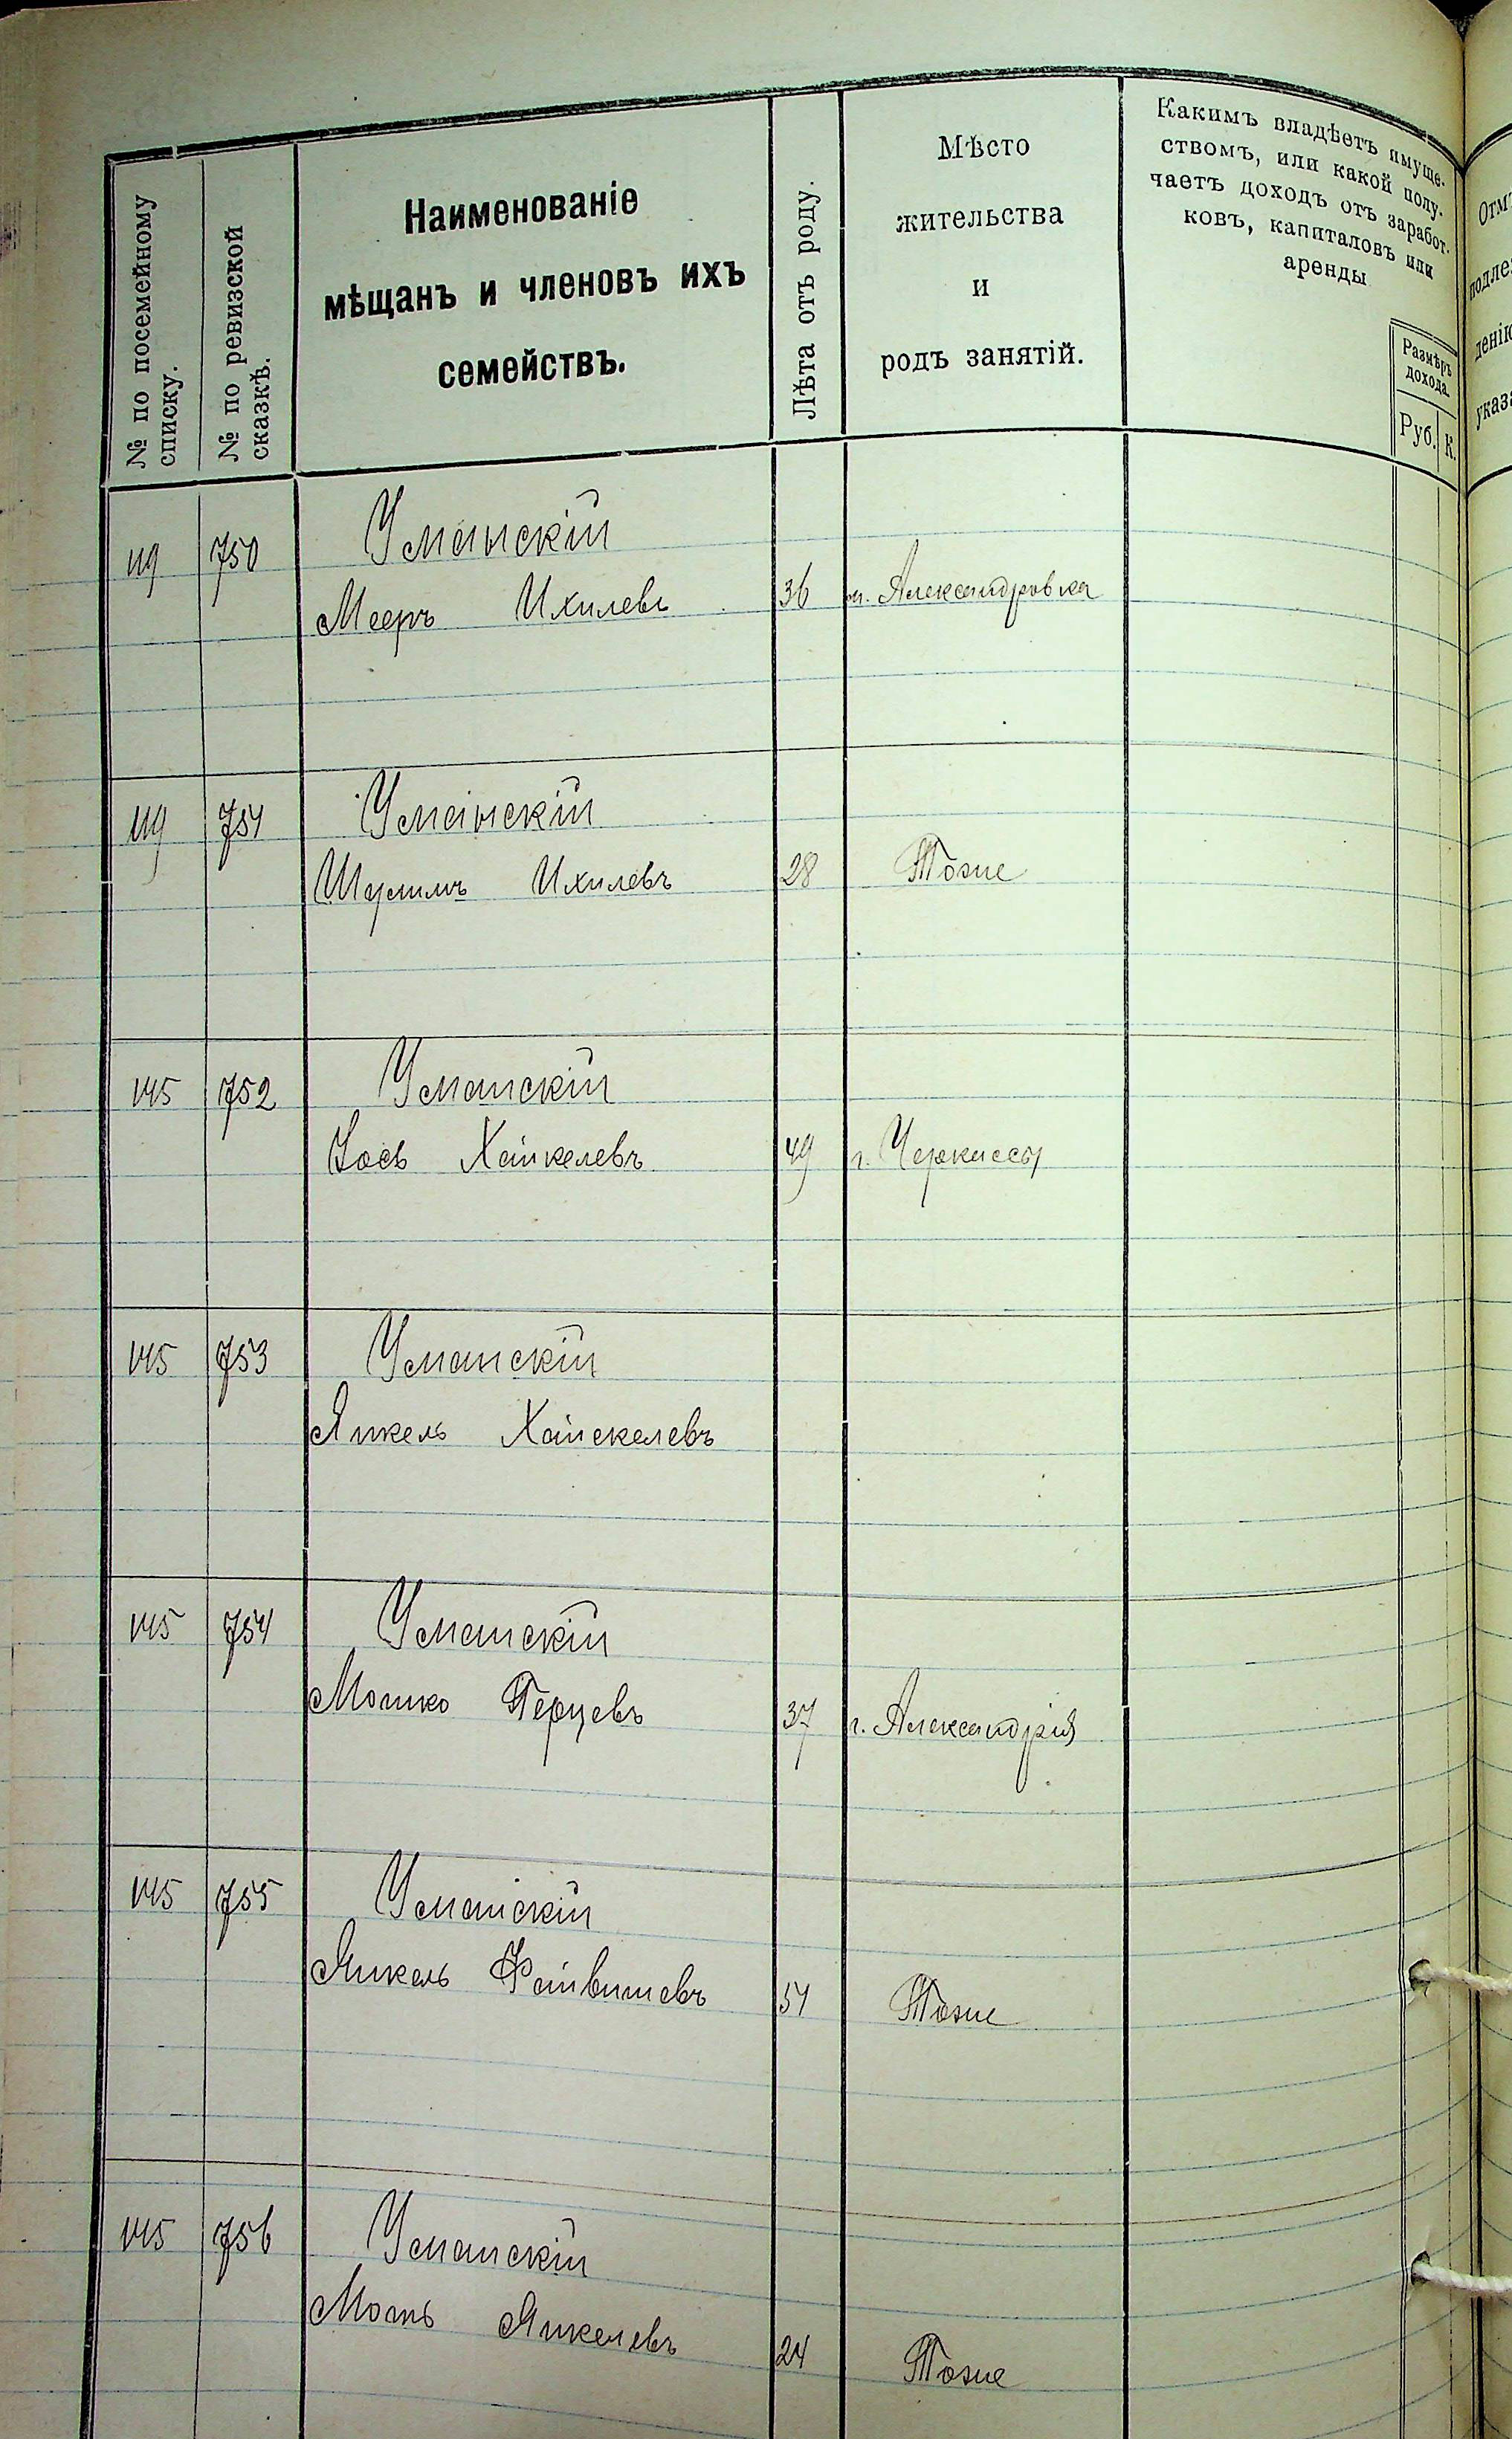 № по посемейному
списку.
№ по ревизской
сказкѣ.
Наименованіе
мѣщанъ и членовъ ихъ
семействъ.
Лѣта отъ роду.
Мѣсто
жительства
и
родъ занятій.
Какимъ владѣетъ имуще-
ствомъ, или какой полу-
чаетъ доходъ отъ заработ-
ковъ, капиталовъ или
аренды
Размѣръ
дохода.
Руб. К.
119 750 Уманскій
Мееръ Ихилевъ 36 м. Александровка
119 751 Уманскій
Шулимъ Ихилевъ 28 Тоже
145 752 Уманскій
Іось Хайкелевъ 49 г. Черкассы
145 753 Уманскій
Янкель Хайскелевъ
145 754 Уманскій
Мошко Герцевъ 37 г. Александрія
145 755 Уманскій
Янкель Файвишевъ 54 Тоже
145 756 Уманскій
Моть Янкелевъ 24 Тоже